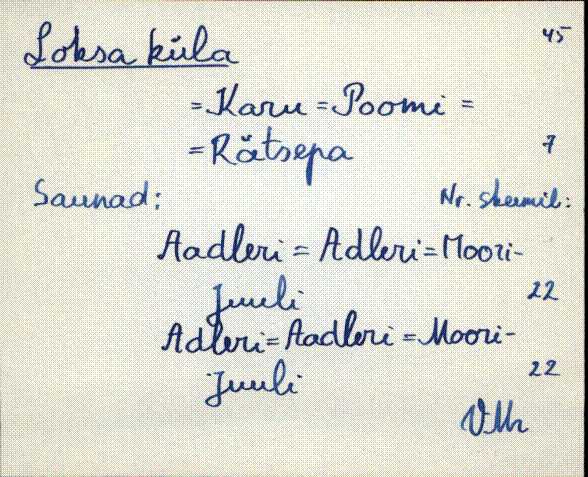 Loksa küla 45
= Karu = Poomi =
= Rätsepa 7
Saunad: Nr. skeemil:
Aadleri = Adleri = Moori-
Juuli 22
Adleri = Aadleri = Moori-
Juuli 22